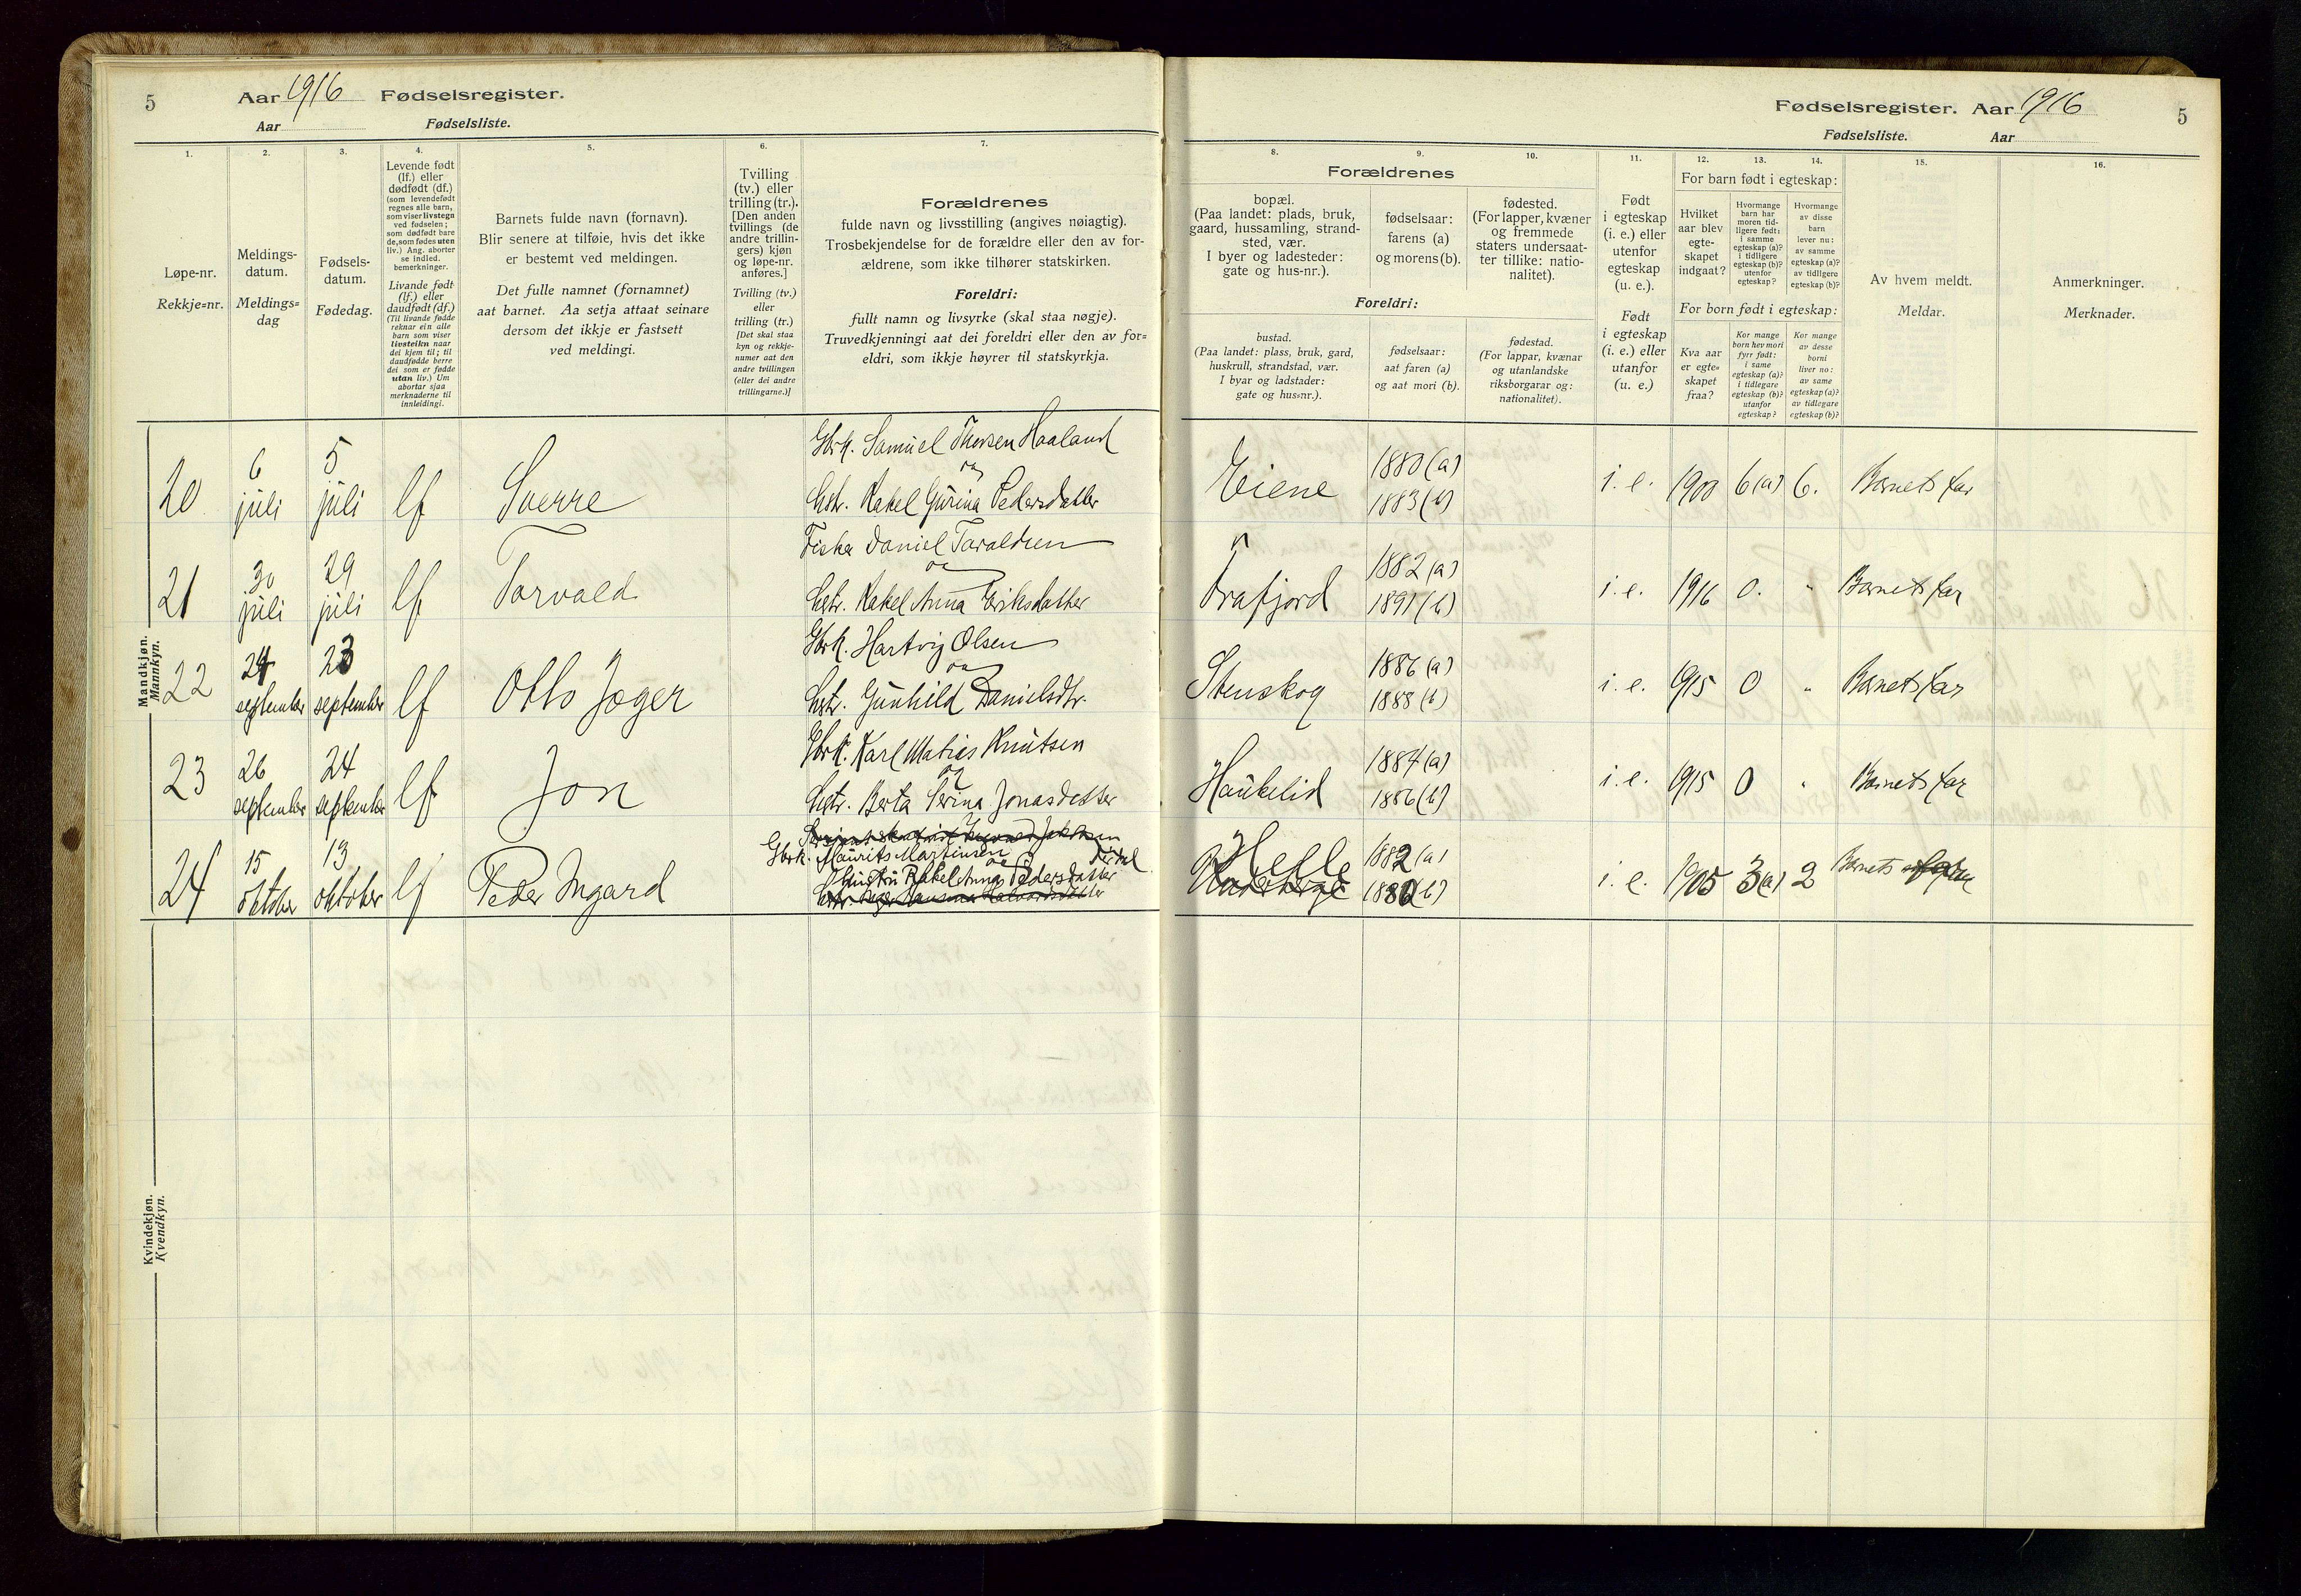 5
Aar 1916 Fødselsregister.
Aar Fødselsliste.
Fødselsregister. Aar 1916
Fødselsliste. Aar
5
1.
Løpe-nr.
Rekkje=nr.
2.
Meldings-
datum.
Meldings=
dag
3.
Fødsels-
datum.
Fødedag.
4.
Levende født
(lf.) eller
dødfødt (df.)
(som levendefødt
regnes alle barn,
som viser livstegn
ved fødselen;
som dødfødt bare
de, som fødes uten
liv.) Ang. aborter
se indled.
bemerkninger.
Livande født
(lf.) eller
daudfødt (df.)
(Til livande fødde
reknar ein alle
barn som viser
livsteikn naar
dei kjem til; til
daudfødde berre
dei som er fødde
utan liv.) Um
abortar sjaa
merknaderne til
innleidingi.
5.
Barnets fulde navn (fornavn).
Blir senere at tilføie, hvis det ikke
er bestemt ved meldingen.
Det fulle namnet (fornamnet)
aat barnet. Aa setja attaat seinare
dersom det ikkje er fastsett
ved meldingi.
6.
Tvilling
(tv.) eller
trilling (tr.).
[Den anden
tvillings (de
andre trillin-
gers) kjøn
og løpe-nr.
anføres.]
Tvilling (tv.)
eller
trilling (tr.)
[Det skal staa
kyn og rekkje-
numer aat den
andre tvillingen
(eller dei andre
trillingarne.)]
7.
Forældrenes
fulde navn og livsstilling (angives nøiagtig).
Trosbekjendelse for de forældre eller den av for-
ældrene, som ikke tilhører statskirken.
Foreldri:
fullt namn og livsyrke (skal staa nøgje).
Truvedkjenningi aat dei foreldri eller den av for=
eldri, som ikkje høyrer til statskyrkja.
Forældrenes
8.
bopæl.
(Paa landet: plads, bruk,
gaard, hussamling, strand-
sted, vær.
I byer og ladesteder:
gate og hus-nr.).
9.
fødselsaar:
farens (a)
og morens (b).
10.
fødested.
(For lapper, kvæner
og fremmede
staters undersaat-
ter tillike: natio-
nalitet).
Foreldri:
bustad.
(Paa landet: plass, bruk, gard,
huskrull, strandstad, vær.
I byar og ladstader:
gate og hus=nr.).
fødselsaar:
aat faren (a)
og aat mori (b).
fødestad.
(For lappar, kvænar
og utanlandske
riksborgarar og:
nationalitet).
11.
Født
i egteskap
(i. e.) eller
utenfor
egteskap
(u. e.).
Født
i egteskap
(i. e.) eller
utanfor
(u. e.)
12.
13.
14.
For barn født i egteskap:
Hvilket
aar blev
egte-
skapet
indgaat?
Hvormange
barn har
moren tid-
ligere født:
i samme
egteskap (a)?
i tidligere
egteskap (b)?
utenfor
egteskap?
Hvormange
av disse
barn
lever nu:
av samme
egteskap (a)?
av tidligere
egteskap (b)?
For born født i egteskap:
Kva aar
er egte=
skapet
fraa?
Kor mange
born hev mori
fyrr født:
i same
egteskap (a)?
i tidlegare
egteskap (b)?
utanfor
egteskap?
Kor mange
av desse
borni
liver no:
av same
egteskap (a)?
av tidlegare
egteskap (b)?
15.
Av hvem meldt.
Meldar.
16.
Anmerkninger.
Merknader.
Mandkjøn.
Mannkyn.
20 6 juli 5 juli lf Sverre
Gbrk. Samuel Thorsen Haaland
og
hstr. Rakel Gurina Pedersdatter
Eiene 1880 (a) 1883 (b) i. e. 1900 6(a) 6. Barnets far
21 30 juli 29 juli lf Torvald
Fisker Daniel Taraldsen
og
hstr. Rakel Anna Eriksdatter
Frafjord 1882 (a) 1891 (b) i. e. 1916 0. " Barnets far
22 24 september 23 september lf Otto Jæger
Gbrk. Hartvig Olsen
og
hstr. Gunhild Danielsdtr.
Stenskog 1886 (a) 1888 (b) i. e. 1915 0 " Barnets far
23 26 september 24 september lf Jon
Gbrk. Karl Matias Knutsen
og
hstr. Berta Serina Jonasdatter
Haukelid 1884 (a) 1886 (b) i. e. 1915 0 " Barnets far
24 15 oktober 13 oktober lf Peder Ingard
Gbrk. Maurits Martinsen
og
Hustru Rakel Anna Pedersdatter
Helle 1882 (a) 1880 (b) i. e. 1905 3(a) 2 Barnets
Kvindekjøn.
Kvendkyn.